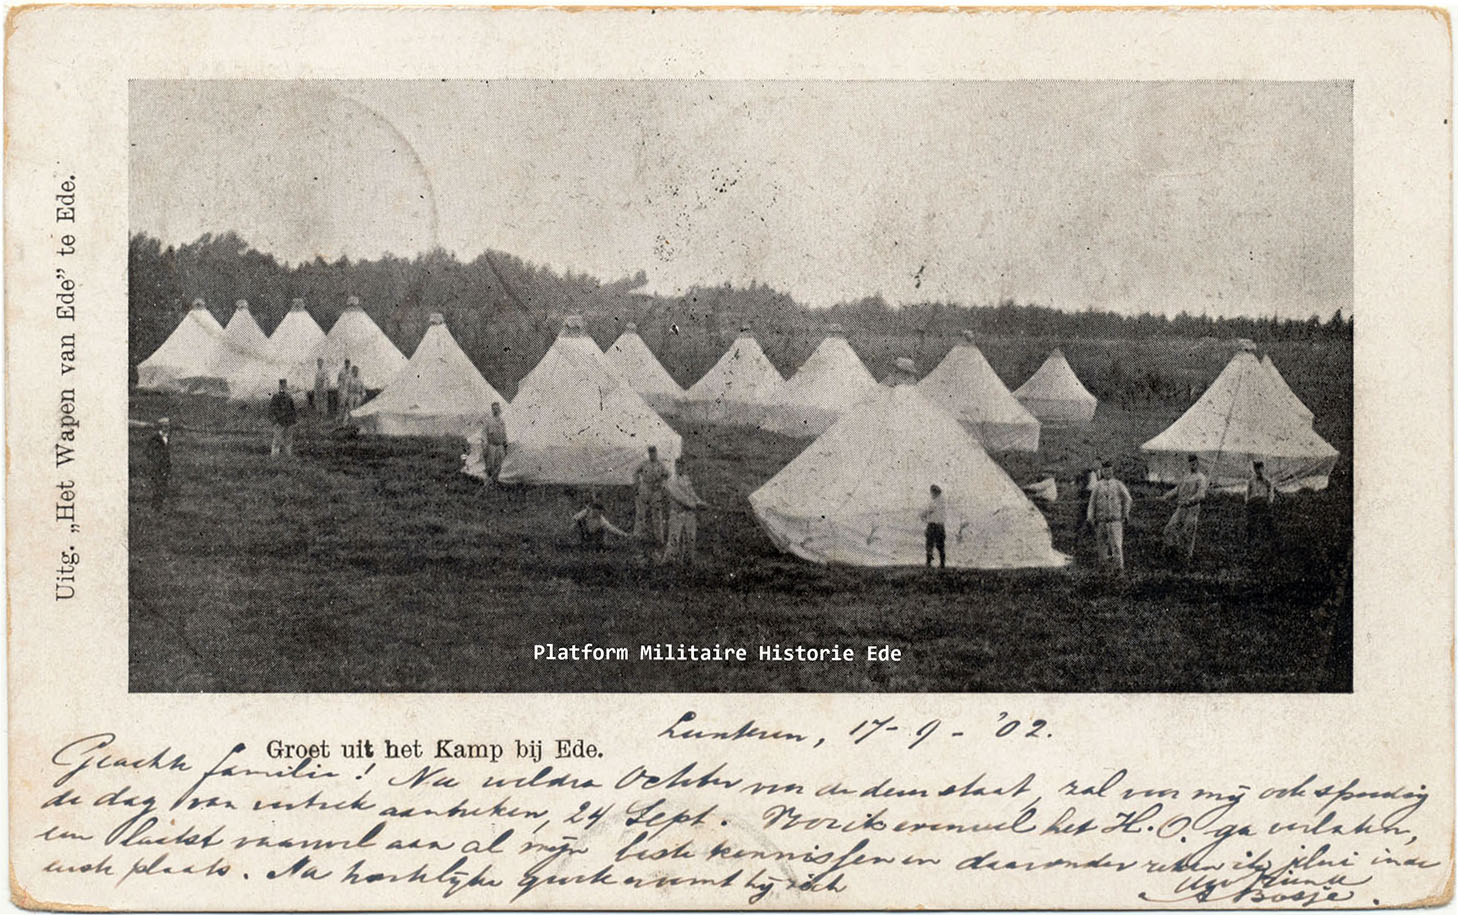 Uitg. „Het Wapen van Ede” te Ede.
Platform Militaire Historie Ede
Groet uit het Kamp bij Ede.
Lunteren, 17-9-'02.
Geachte familie! Nu weldra October voor de deur staat, zal voor mij ook spoedig
de dag van vertrek aanbreken, 24 Sept. Voor ik evenwel het H. O. ga verlaten,
een laatst vaarwel aan al mijn beste kennissen en daaronder reken ik jelui in de
eerste plaats. Na hartelijke groete noemt hij zich
Uw vriend
A Bosje.